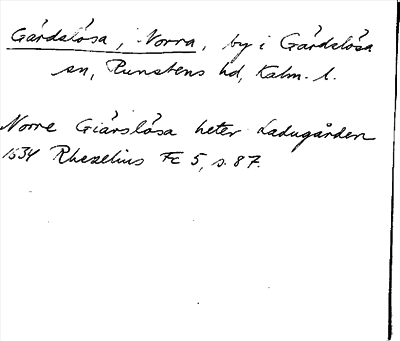 Gårdslösa, Norra, by i Gårdslösa
sn, Runstens hd, Kalm. l.
Norre Giärslösa heter Ladugården
1634 Rhezelius Fc 5, s. 87.